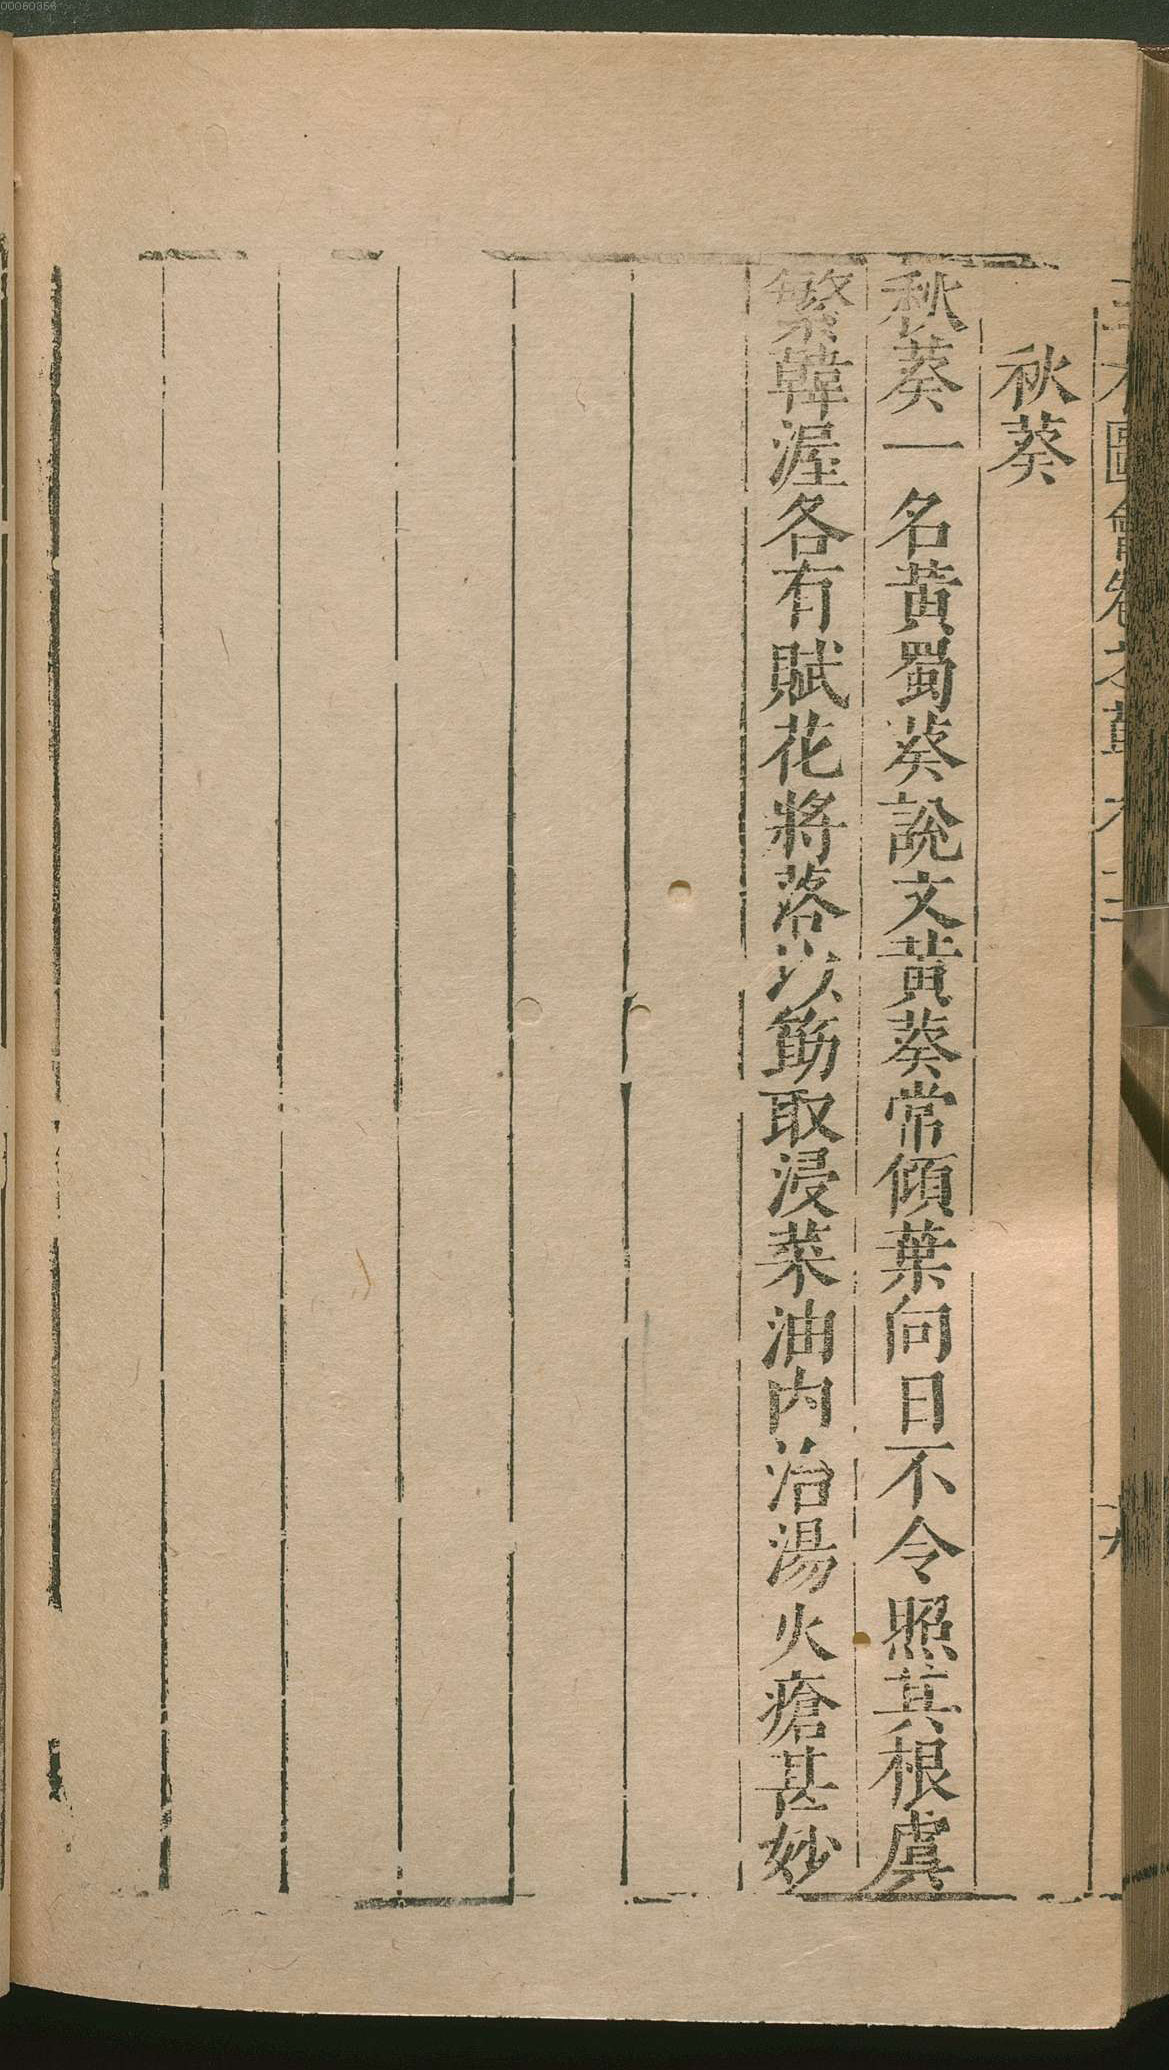 00060356
圖會卷之草木十二
秋葵
秋葵一名黃蜀葵說文黃葵常傾葉向日不令照其根虞
繁韓渥各有賦花將落以筯取浸菜油內治湯火瘡甚妙